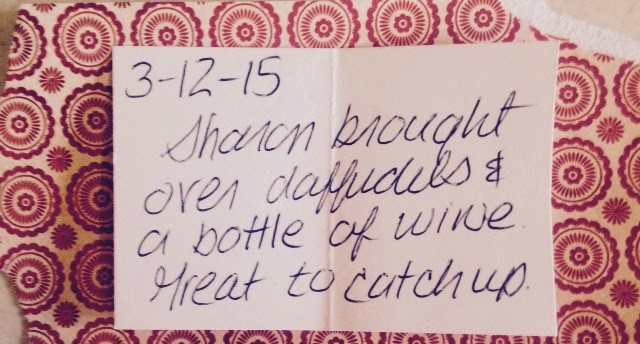 3-12-15
Sharon brought
over daffudils &
a bottle of wine.
Great to catch up.